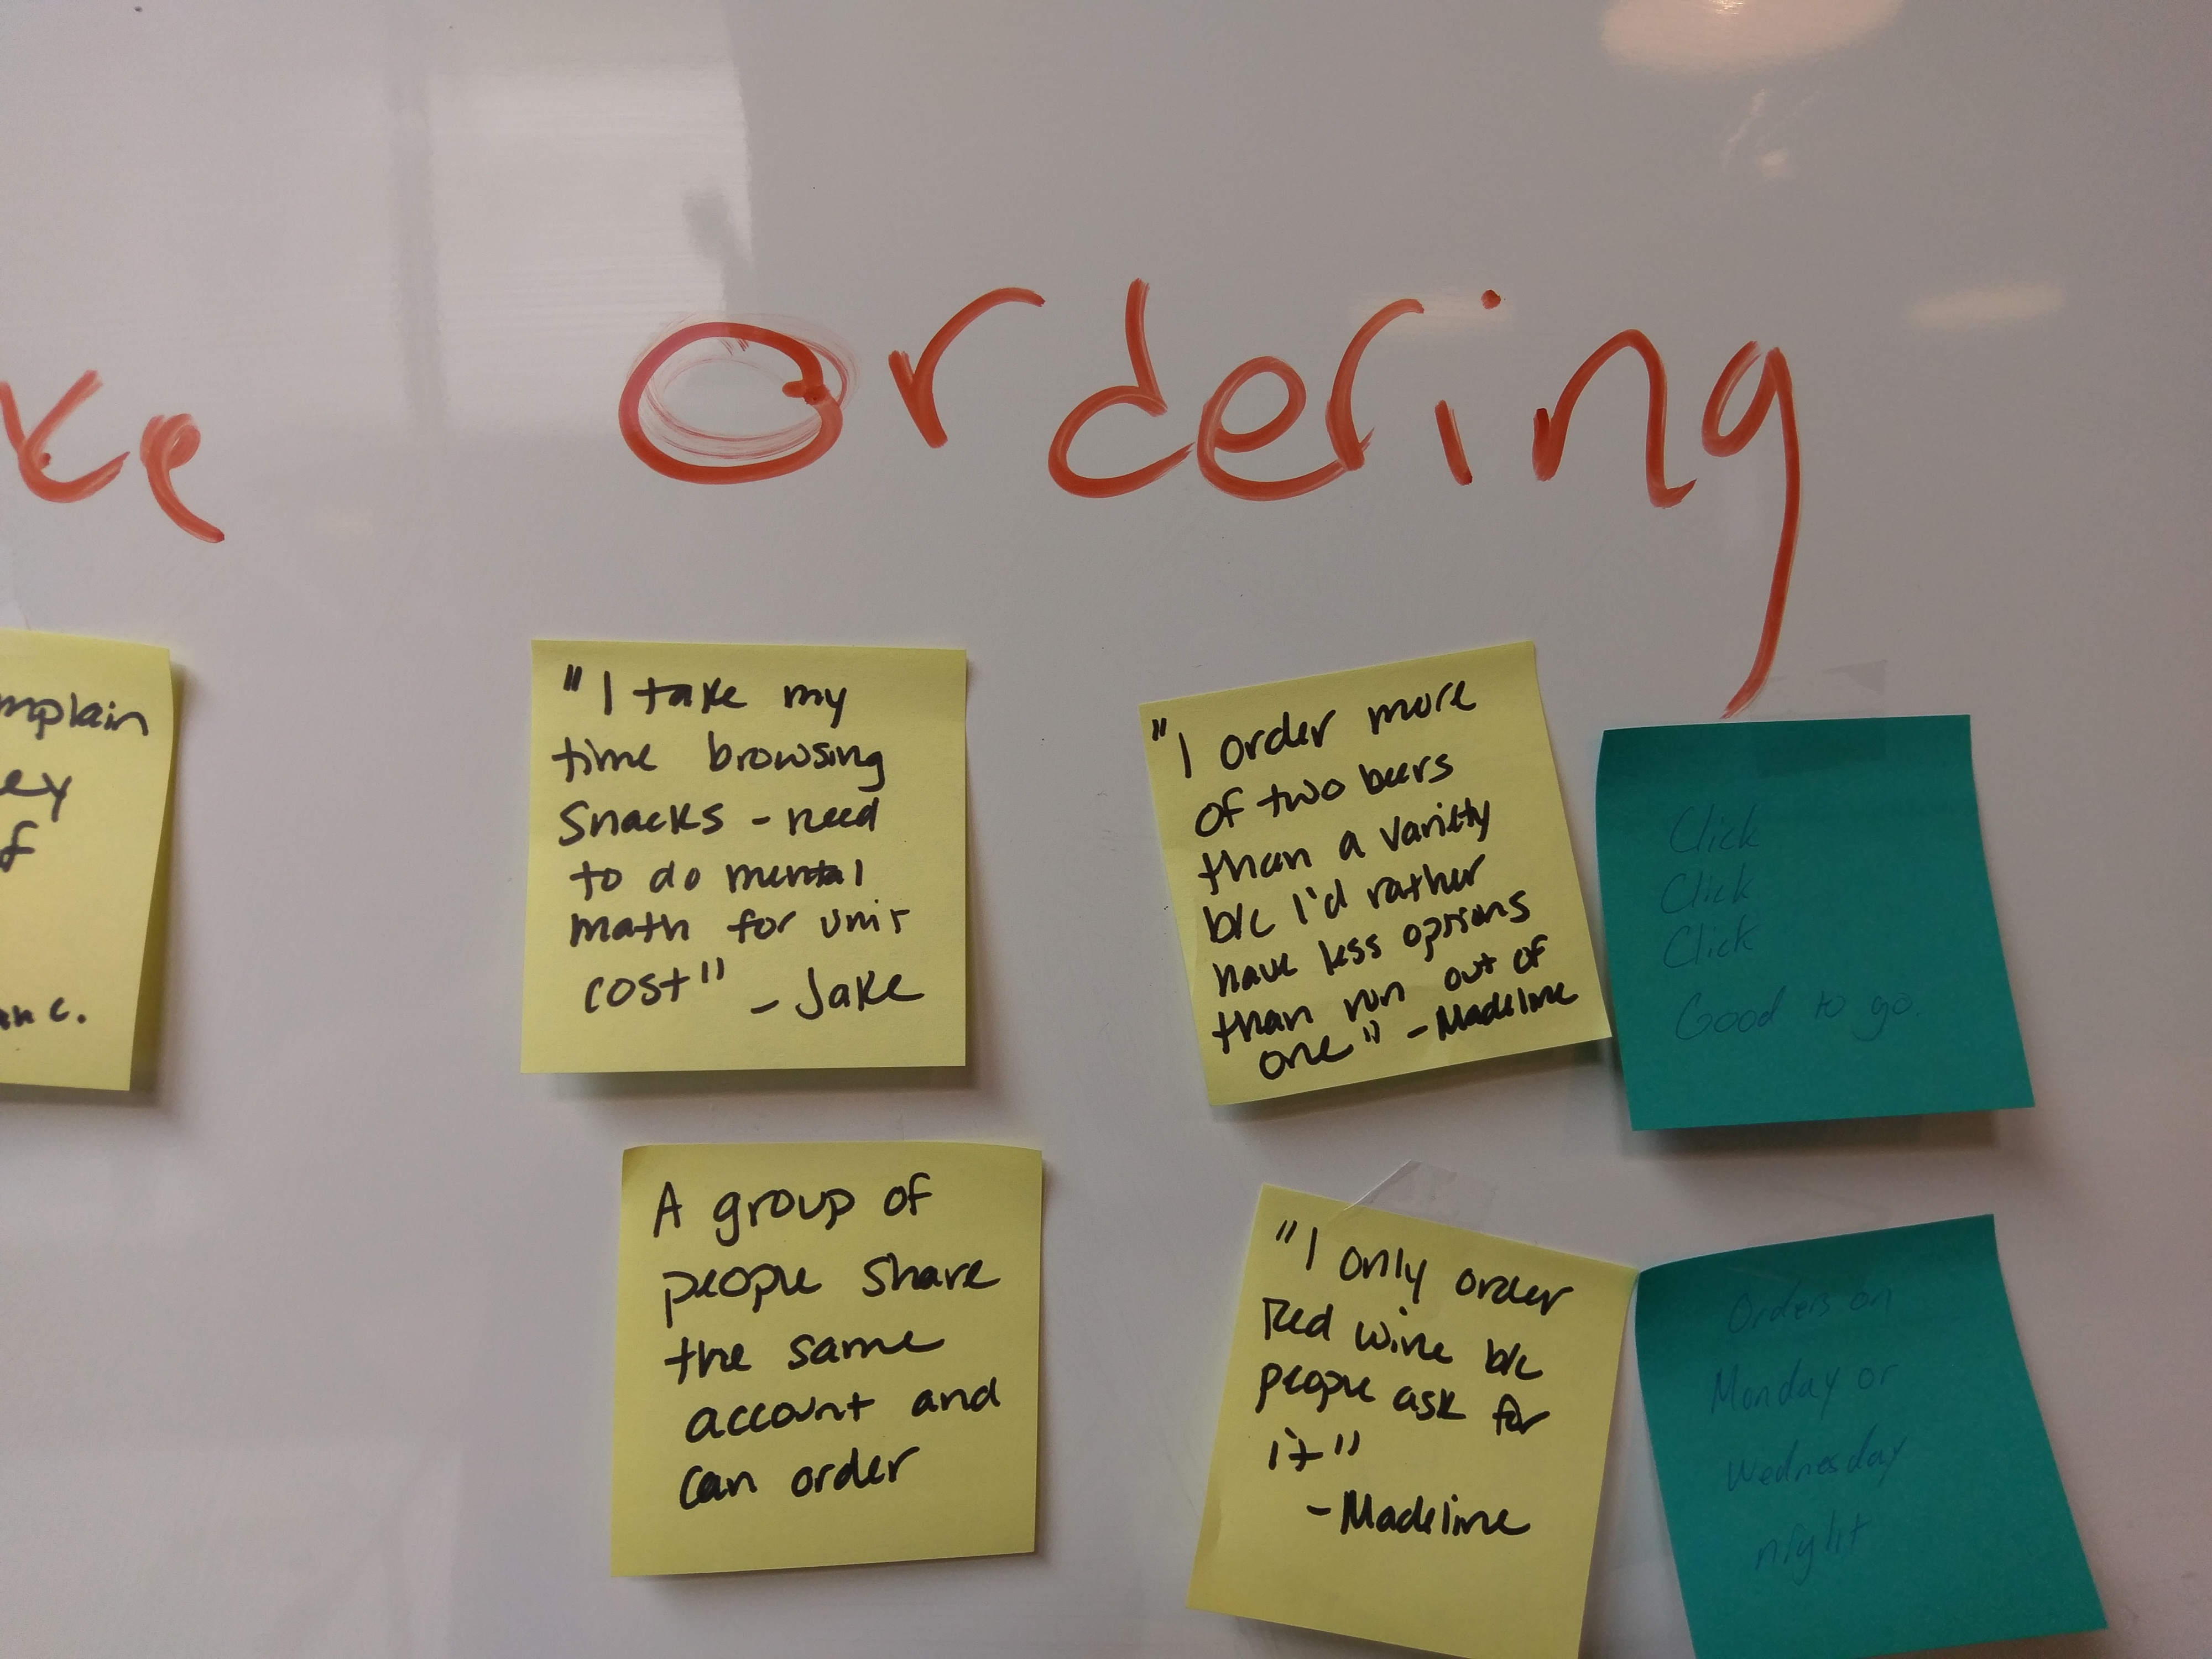 ke
Ordering
mplain
ey
f
"I take my
time browsing
snacks - need
to do mental
math for unit
cost" - Jake
"I order more
of two beers
than a variety
b/c I'd rather
have less options
than run out of
one" - Madeline
Click
Click
Click
Good to go.
A group of
people share
the same
account and
can order
"I only order
Red wine b/c
people ask for
it"
- Madeline
Orders on
Monday or
Wednesday
night